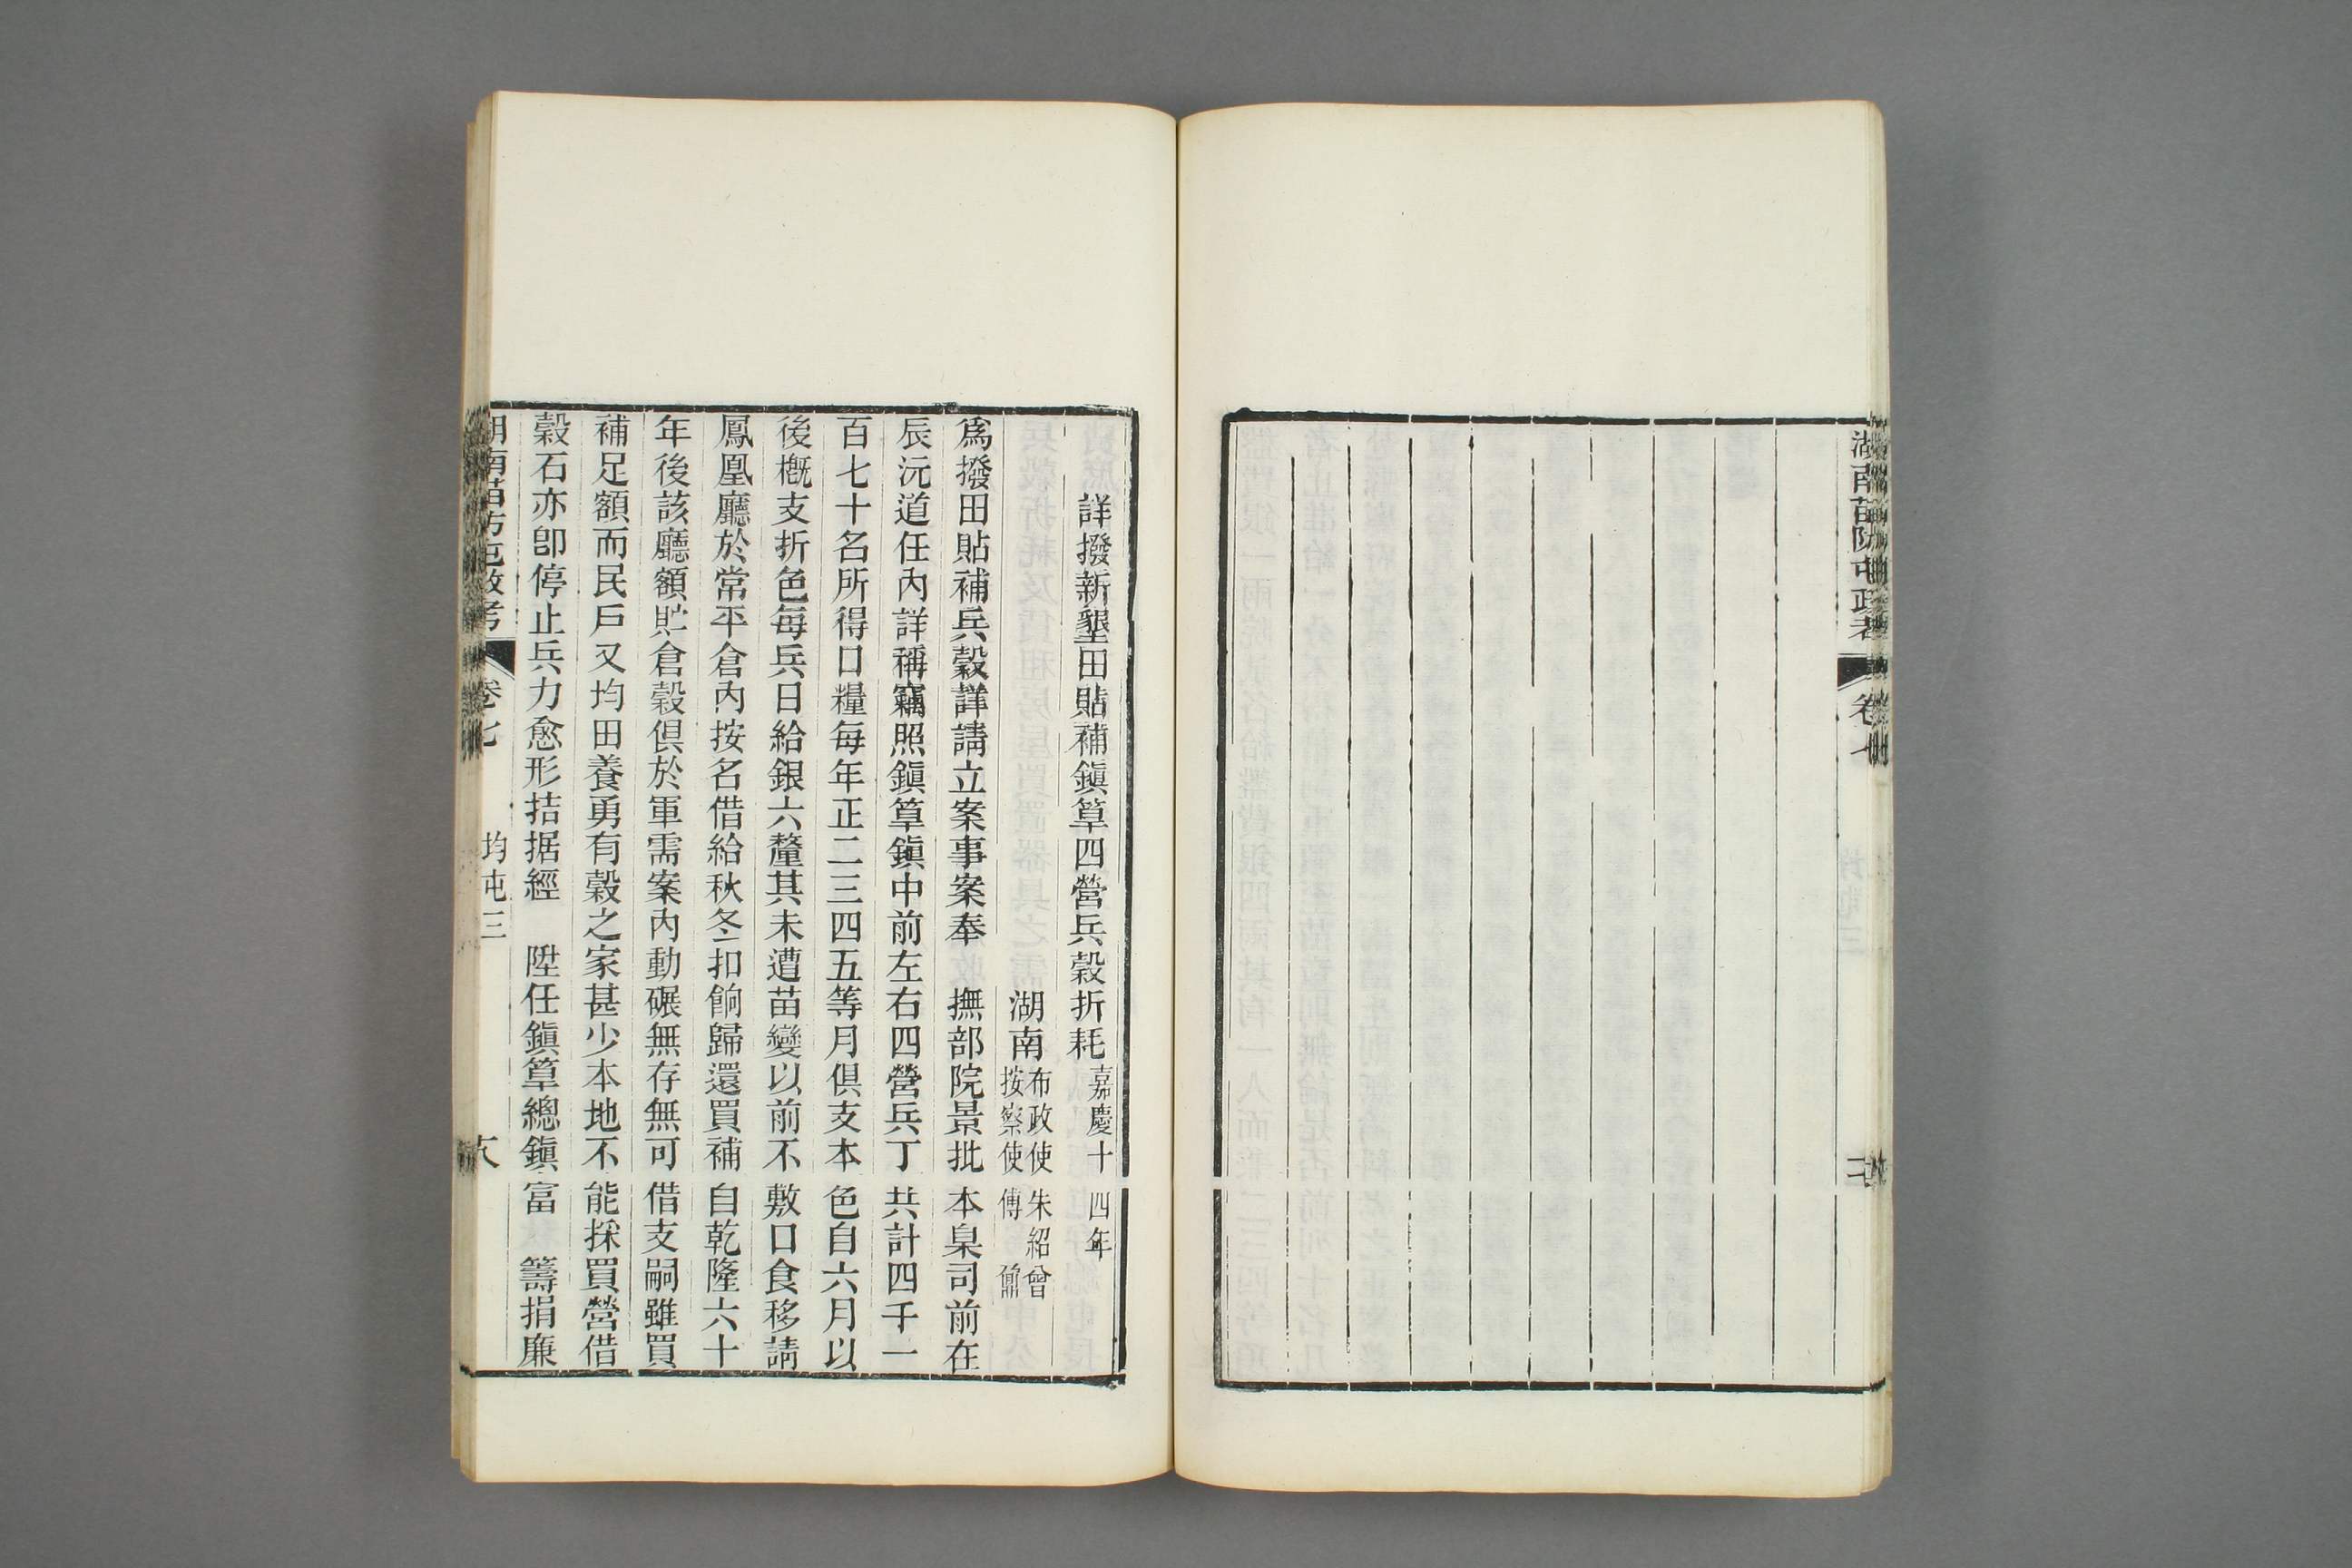 湖南苗防屯政考
卷七
詳撥新墾田貼補鎭筸四營兵穀折耗 嘉慶十四年
湖南 布政使 朱紹曾
按察使 傅鼐
爲撥田貼補兵穀詳請立案事案奉 撫部院景批本臬司前在
辰沅道任內詳稱竊照鎭筸鎭中前左右四營兵丁共計四千一
百七十名所得口糧每年正二三四五等月俱支本色自六月以
後槪支折色每兵日給銀六釐其未遭苗變以前不敷口食移請
鳳凰廳於常平倉內按名借給秋冬扣餉歸還買補自乾隆六十
年後該廳額貯倉穀俱於軍需案內動碾無存無可借支嗣雖買
補足額而民戶又均田養勇有穀之家甚少本地不能採買營借
穀石亦卽停止兵力愈形拮据經 陞任鎭筸總鎭富 籌捐廉
湖南苗防屯政考
卷七
均屯三